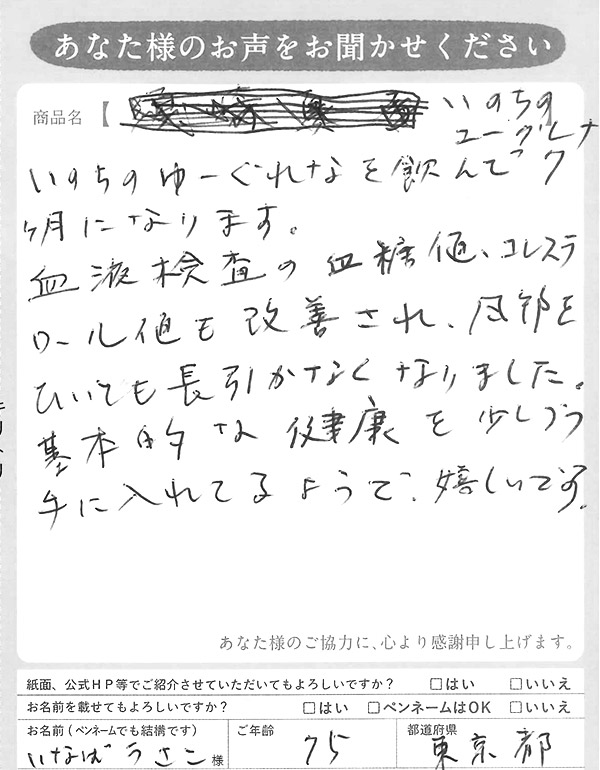 あなた様のお声をお聞かせください
商品名【 いのちの
ユーグレナ
いのちのゆーぐれなを飲んで7
ヶ月になります。
血液検査の血糖値、コレステ
ロール値も改善され、風邪を
ひいても長引かなくなりました。
基本的な健康を少しづつ
手に入れてるようで、嬉しいです。
あなた様のご協力に、心より感謝申し上げます。
紙面、公式HP等でご紹介させていただいてもよろしいですか? □はい □いいえ
お名前を載せてもよろしいですか? □はい □ペンネームはOK □いいえ
お名前(ペンネームでも結構です) ご年齢 都道府県
いなばうさこ 様 75 東京都